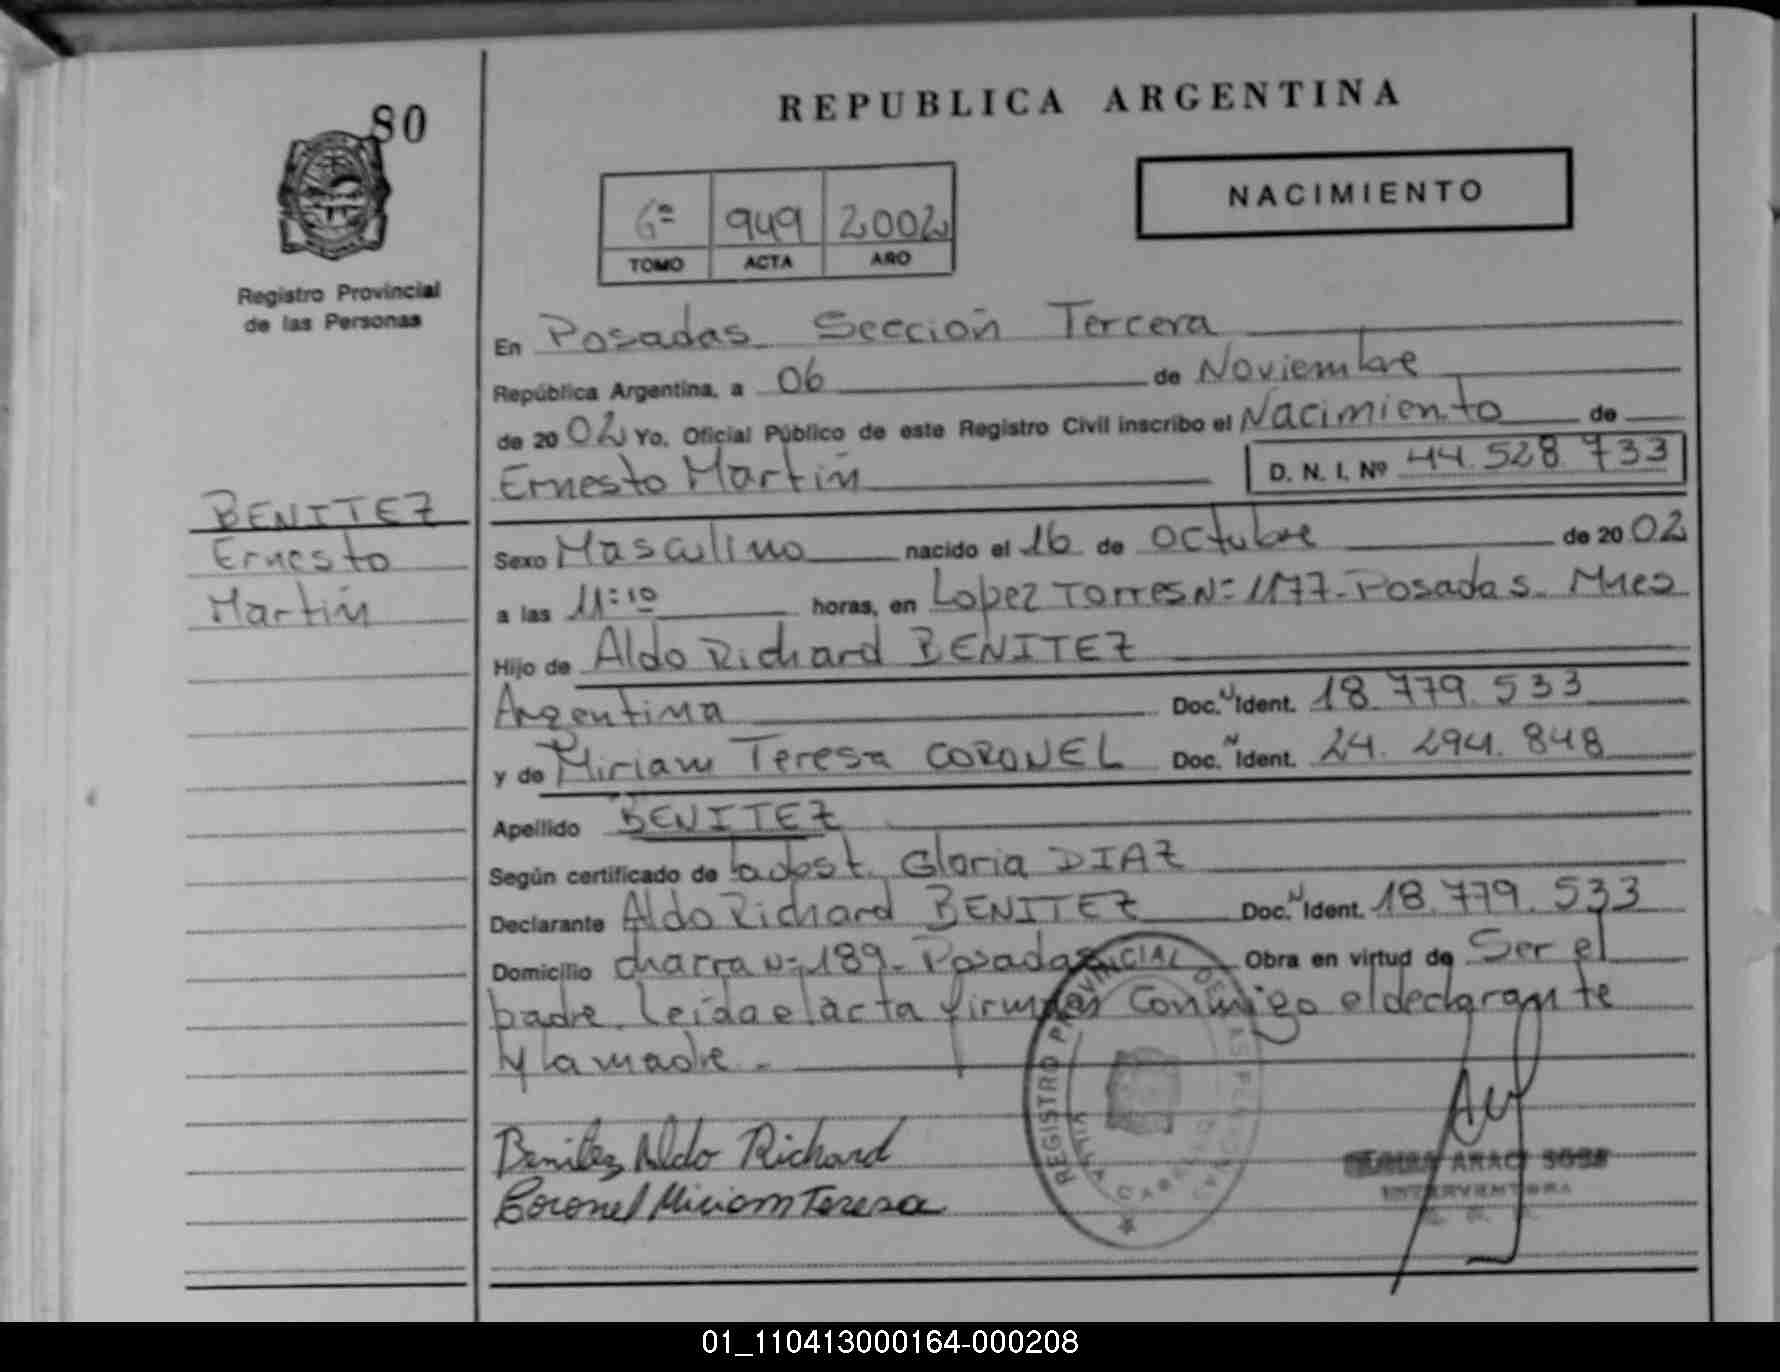 80
Registro Provincial
de las Personas
REPUBLICA ARGENTINA
NACIMIENTO
6ª 949 2002
TOMO ACTA AÑO
En Posadas Sección Tercera
República Argentina, a 06 de Noviembre
de 2002 Yo, Oficial Público de este Registro Civil inscribo el Nacimiento de
Ernesto Martín D. N. I. Nº 44.528.733
BENITEZ
Ernesto
Martín
Sexo Masculino nacido el 16 de octubre de 2002
a las 11:10 horas, en Lopez Torres Nº 1177-Posadas-Mnes
Hijo de Aldo Richard BENITEZ
Argentina Doc. N Ident. 18.779.533
y de Miriam Teresa CORONEL Doc. N Ident. 24.294.848
Apellido BENITEZ
Según certificado de obst. Gloria DIAZ
Declarante Aldo Richard BENITEZ Doc. N Ident. 18.779.533
Domicilio chacra Nº 189-Posadas Obra en virtud de Ser el
padre. Leída el acta firman conmigo el declarante
y la madre.-
Benitez Aldo Richard
Coronel Miriam Teresa
REGISTRO PROVINCIAL DE LAS PERSONAS
ARACI SOSA
INTERVENTORA
01_110413000164-000208